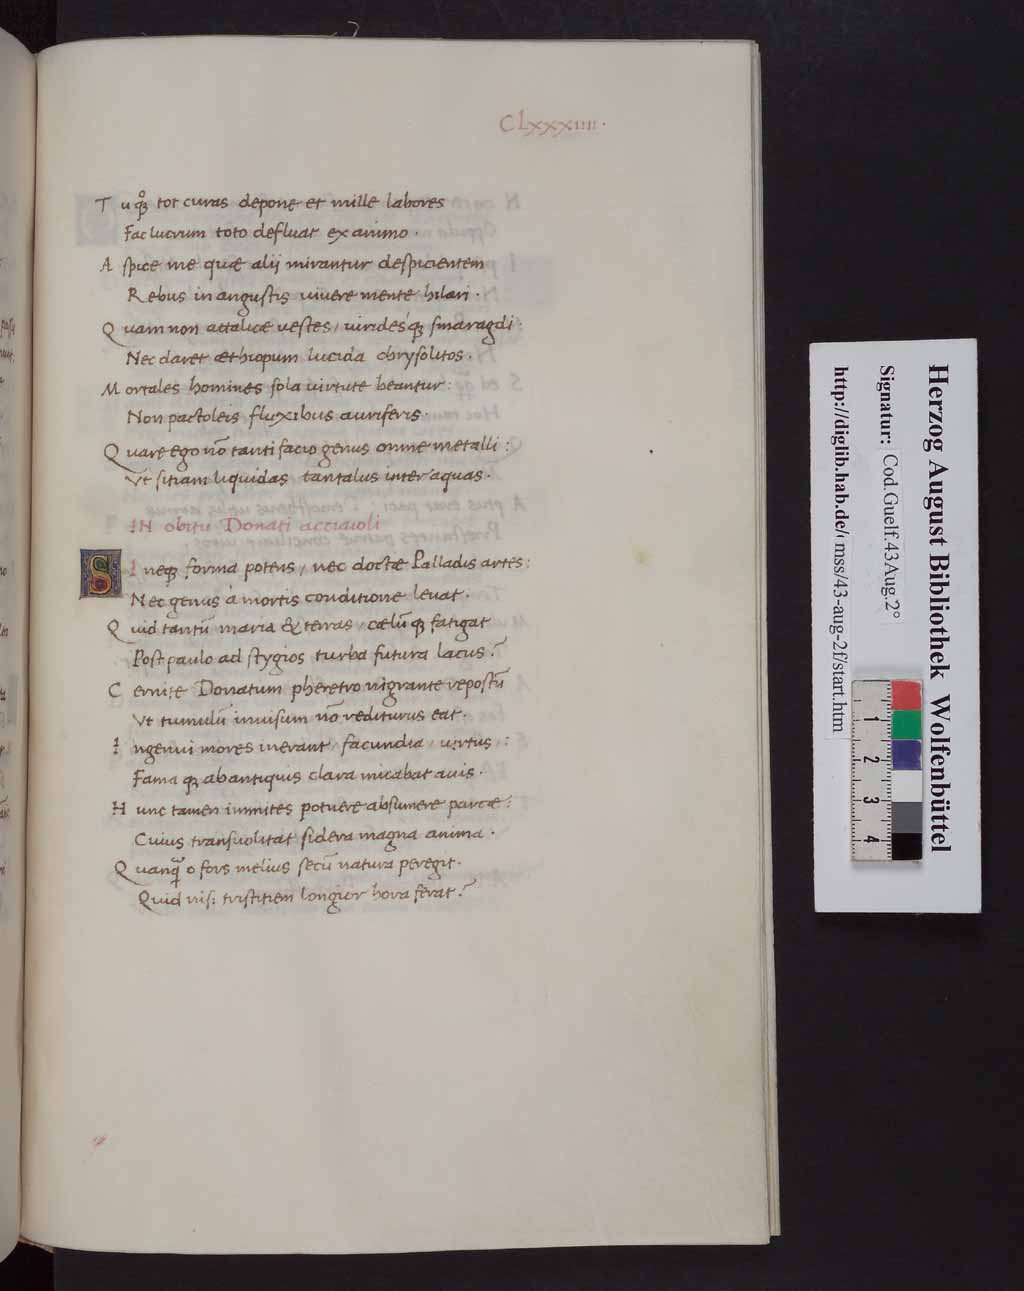 CLxxxiiii·
Tu qͦꝫ tot curas depone et mille labores
Fac lucrum toto defluat ex animo·
Aspice me quæ alij mirantur despicientem
Rebus in angustis uiuere mente hilari·
Quam non attalicæ uestes, uirides'qꝫ smaragdi:
Nec daret æthiopum lucida chrysolitos·
Mortales homines sola uirtute beantur:
Non pactoleis fluxibus auriferis·
Quare ego nō tanti facio genus omne metalli:
Vt sitiam liquidas tantalus inter aquas·
IN obitu Donati acciaioli
SI neqꝫ forma potens, nec doctæ Palladis artes:
Nec genus à mortis conditione leuat·
Quid tantū maria & terras, cælū qꝫ fatigat
Post paulo ad stygios turba futura lacus?
Cernite Donatum pheretro nigrante repostū
Vt tumulū inuisum nō rediturus eat·
Ingenui mores inerant, facundia, uirtus,:
Fama qꝫ ab antiquis clara micabat auis·
Hunc tamen immites potuere absumere parcæ:
Cuius transuolitat sidera magna anima·
Quanqᷓ o fors melius secū natura peregit·
Quid nisi tristitiem longior hora ferat?
Herzog August Bibliothek Wolfenbüttel
Signatur: Cod.Guelf.43Aug.2°
http://diglib.hab.de/mss/43-aug-2f/start.htm
1
2
3
4